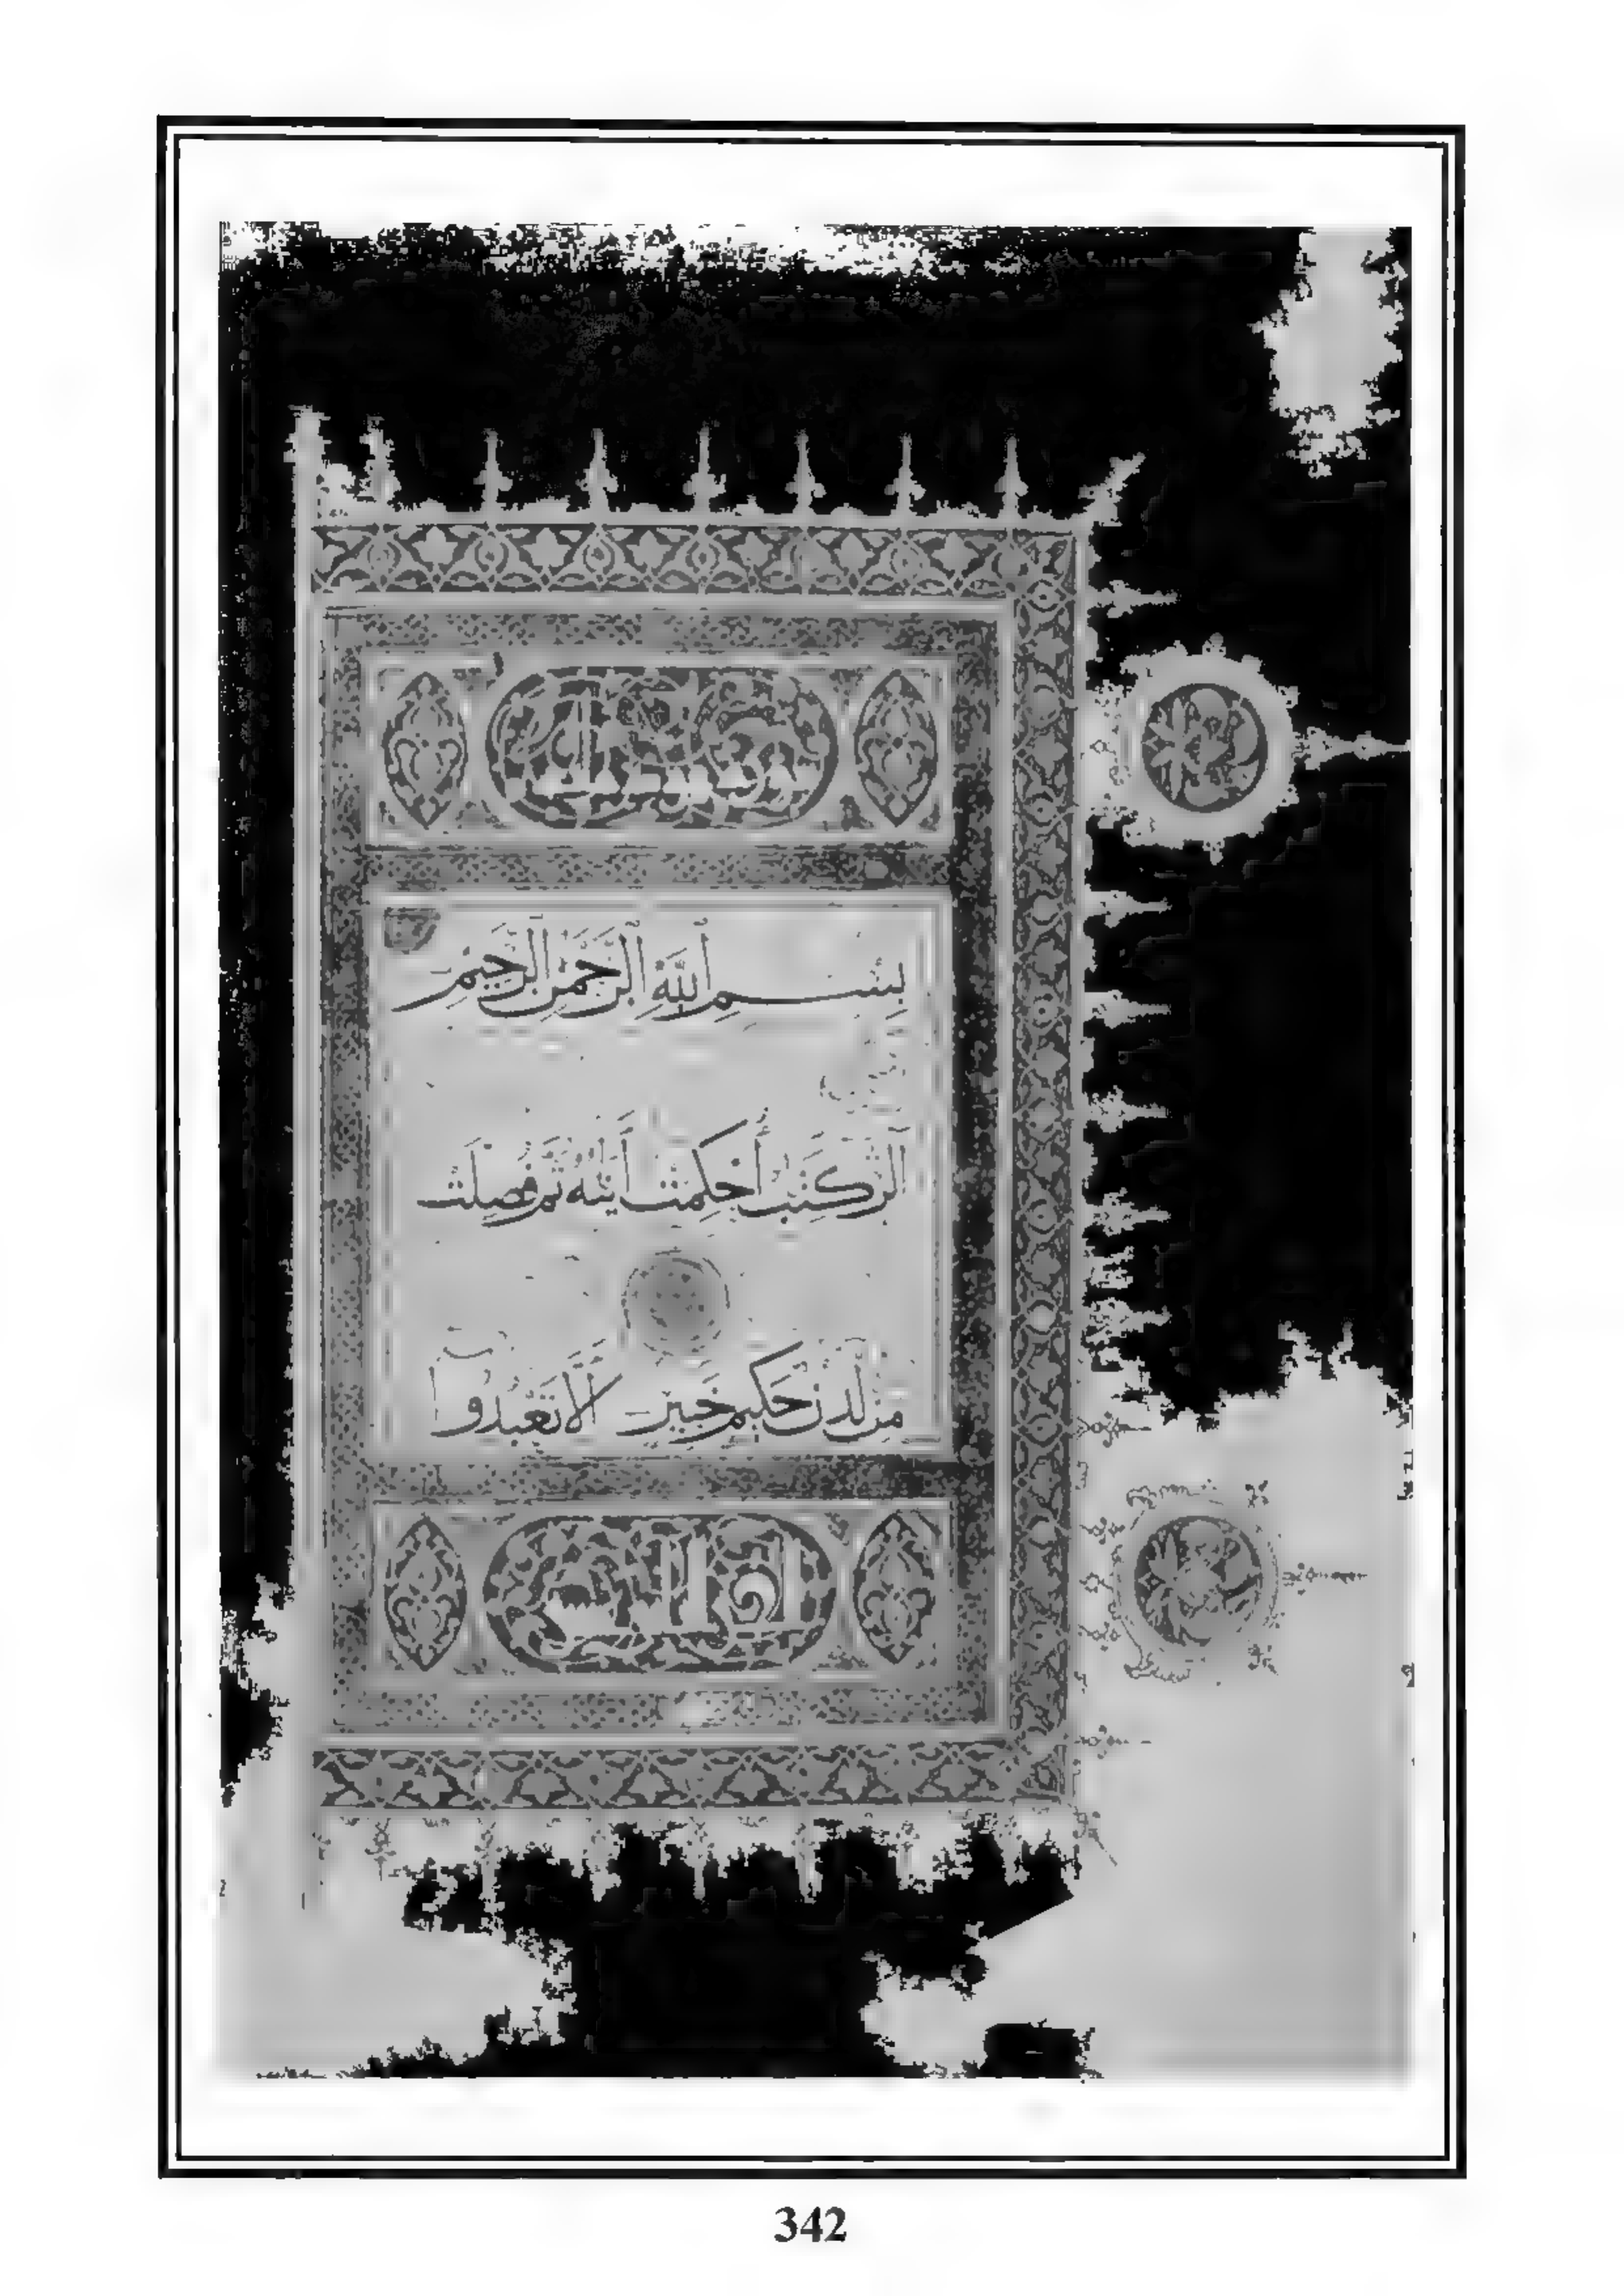 بِسْمِ ٱللَّهِ ٱلرَّحْمَٰنِ ٱلرَّحِيمِ
الٓر كِتَٰبٌ أُحْكِمَتْ ءَايَٰتُهُ ثُمَّ فُصِّلَتْ
مِن لَّدُنْ حَكِيمٍ خَبِيرٍ أَلَّا تَعْبُدُوٓا
342